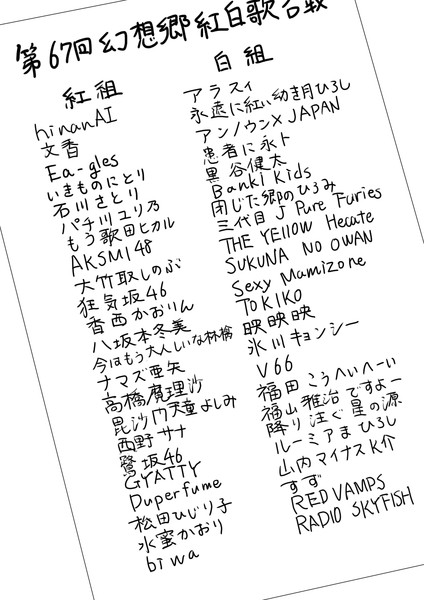 第67回 幻想郷 紅白歌合戦
紅組
hinanAI
文香
Ea-gles
いきものにとり
石川さとり
パチ川ユリ乃
もう歌田ヒカル
AKSMI48
大竹取しのぶ
狂気坂46
香西かおりん
八坂本冬美
今はもう大人しいな林檎
ナマズ亜矢
高橋魔理沙
毘沙門天童よしみ
西野サナ
鷺坂46
GYATTY
Duperfume
松田ひじり子
水蜜かおり
biwa
白組
アラスィ
永遠に紅い幼き月ひろし
アンノウンX JAPAN
患者に永ト
黒谷健太
Banki Kids
閉じた郷のひろみ
三代目 J Pure Furies
THE YEllOW Hecate
SUKUNA NO OWAN
Sexy Mamizone
TOKIKO
映映映
氷川キョンシー
V66
福田こうへいへーい
福山雅治ですよー
降り注ぐ星の源
ルーミアまひろし
山内マイナスK介
すず
RED VAMPS
RADIO SKYFISH